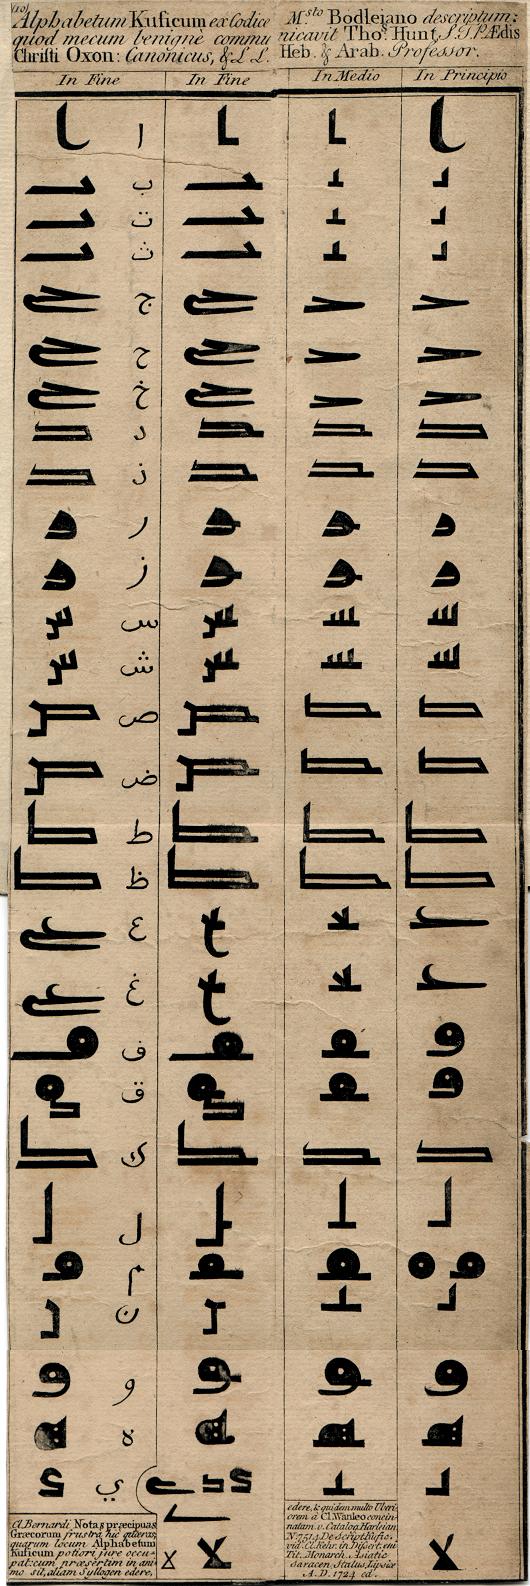 (10)
Alphabetum Kuficum ex Codice Msto Bodlejano descriptum:
quod mecum benignè communicavit Tho: Hunt, S.T.P. Ædis
Christi Oxon: Canonicus, & L L. Heb. & Arab. Professor.
In Fine In Fine In Medio In Principio
ا
ب
ت
ث
ج
ح
خ
د
ذ
ر
ز
س
ش
ص
ض
ط
ظ
ع
غ
ف
ق
ك
ل
م
ن
و
ه
ي
Cl. Bernardi Notas præcipuas
Græcorum frustra huc quæras,
quarum locum Alphabetum
Kuficum potiori jure occu-
pat: cum præsertim in ani-
mo sit, aliam Syllogen edere,
edere, & quidem multo Uberi-
orem à Cl. Wanleo concin-
natam. v. Catalog. Harleian.
N. 7514. De Script. Kufic.
vid. Cl. Kehr. in Dissert. cui
Tit. Monarch. Asiatic.
Saracen. Status, Lipsiæ
A. D. 1724 ed.